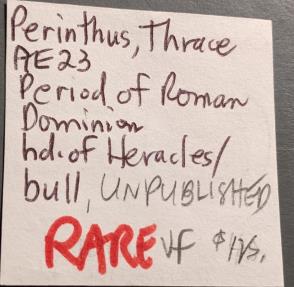 Perinthus, Thrace
AE23
Period of Roman
Dominion
hd. of Heracles/
bull, UNPUBLISHED
RARE VF $175.